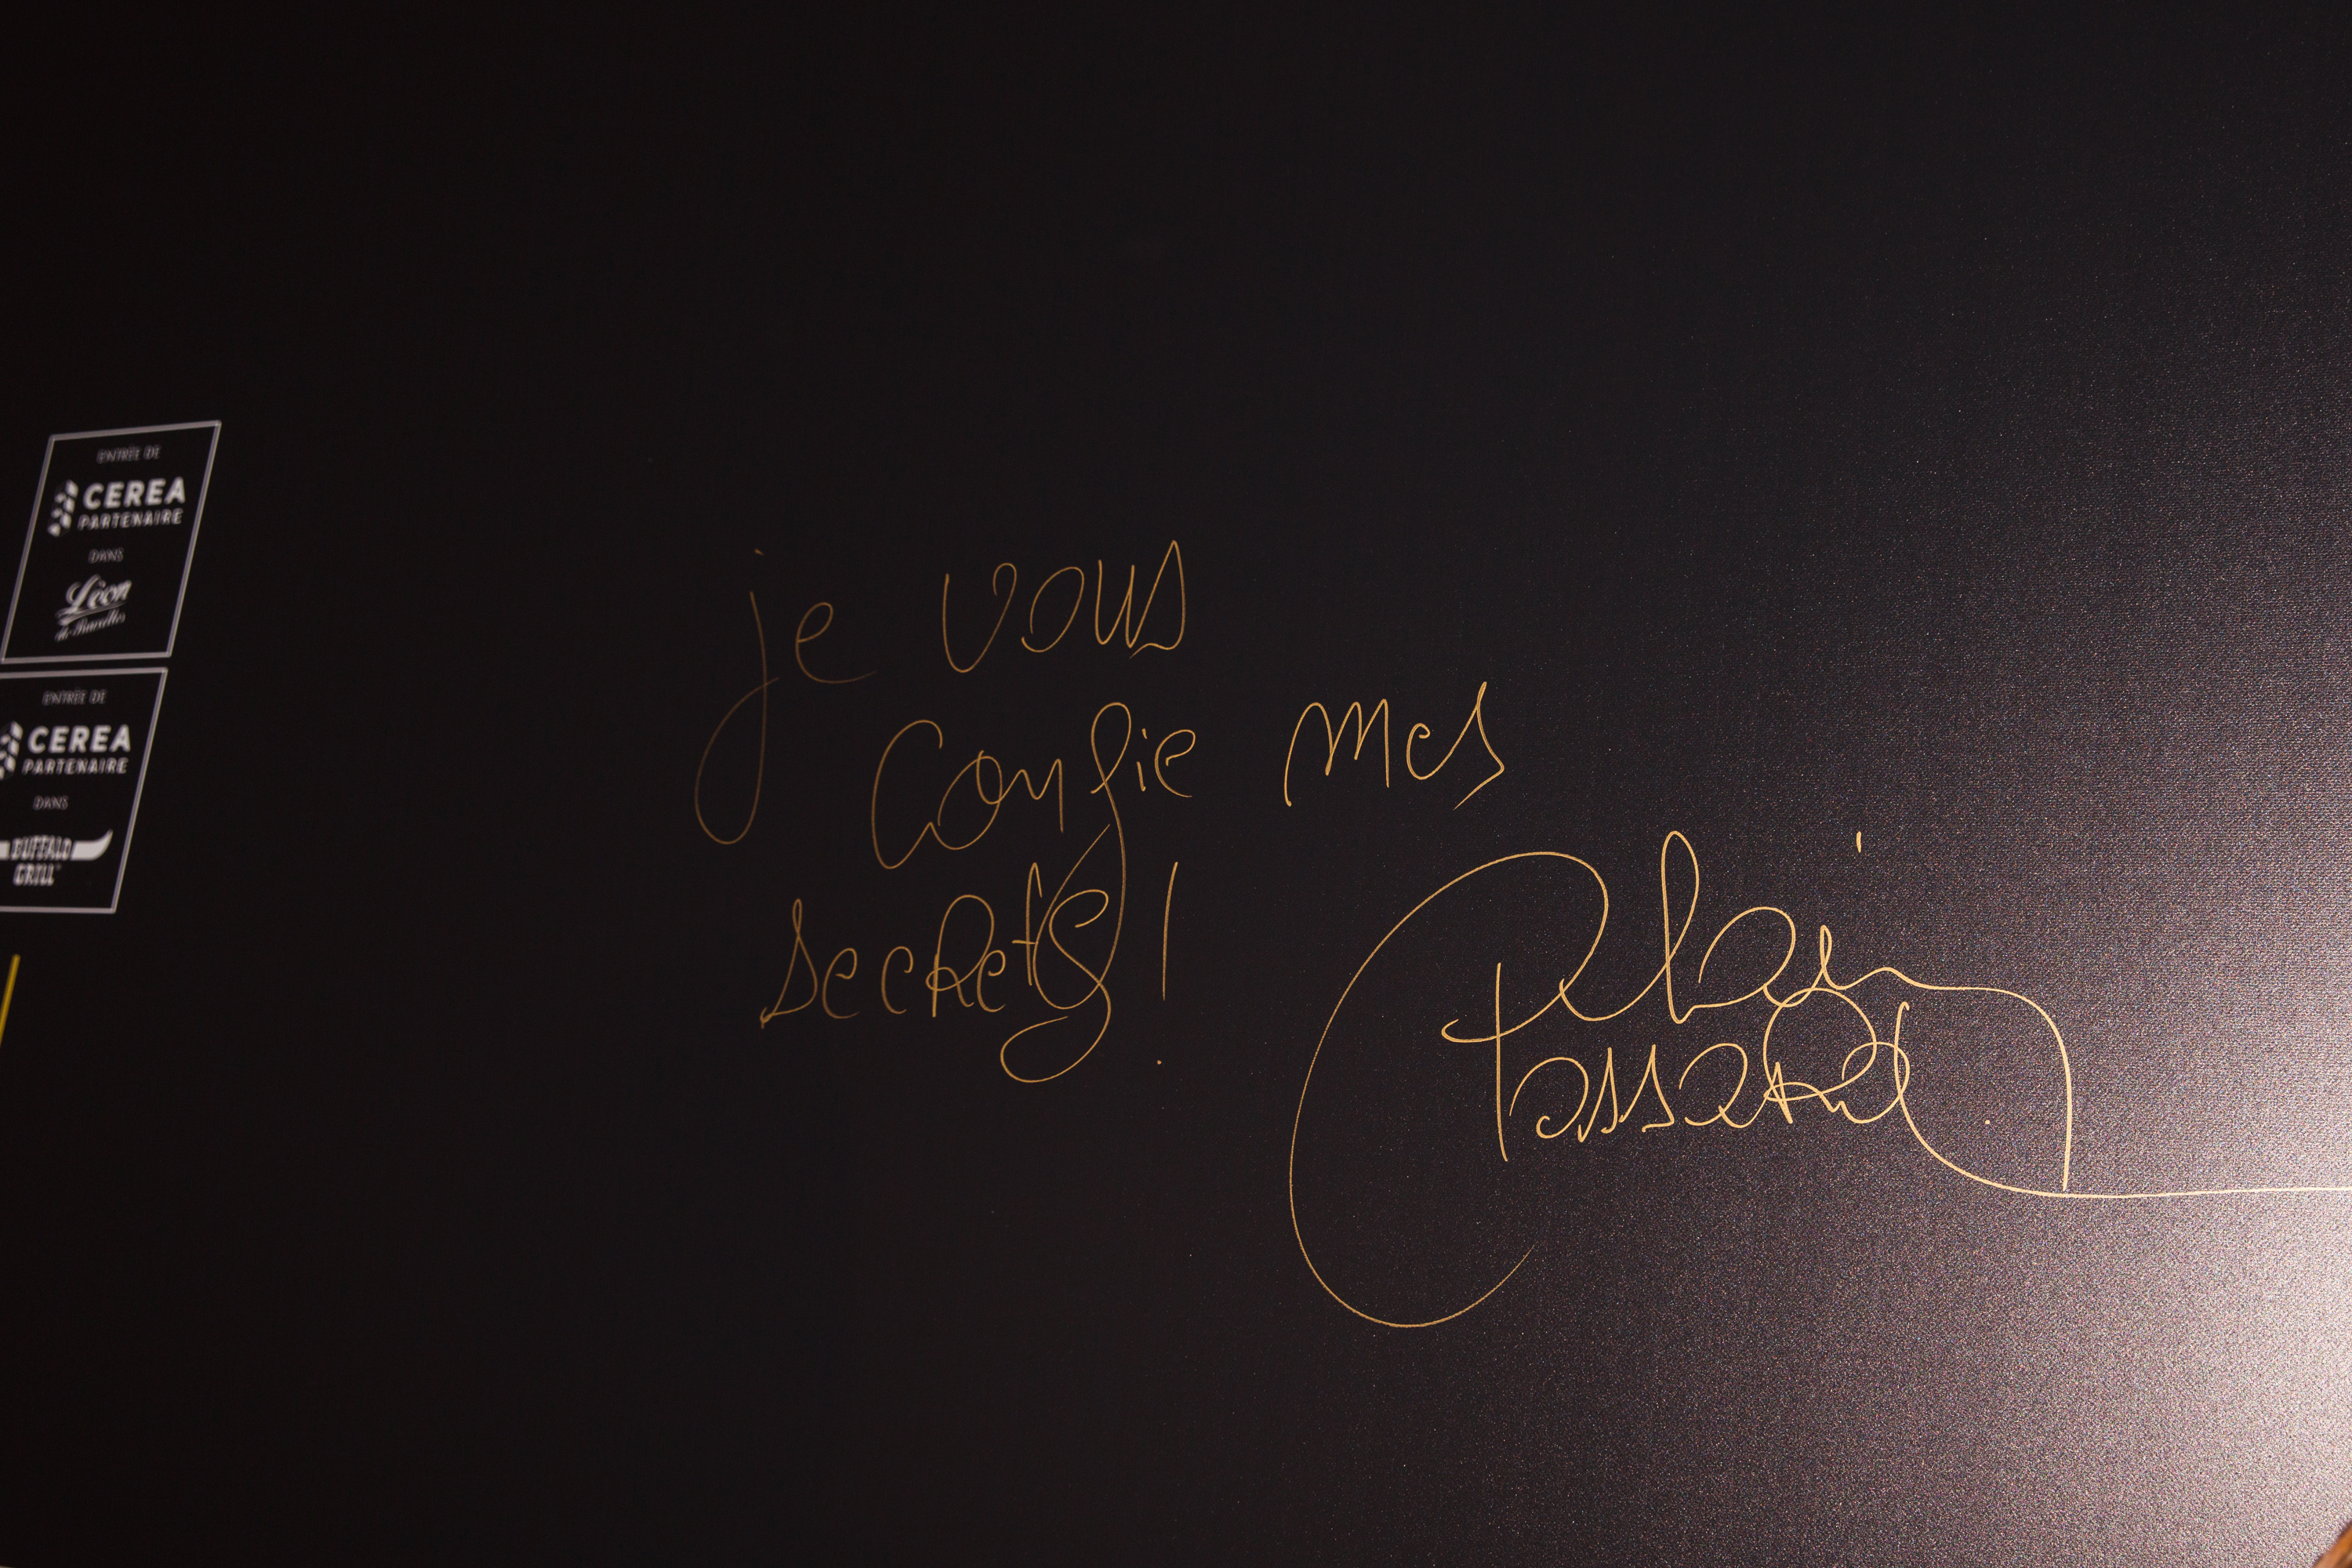 ENTRÉE DE
CEREA
PARTENAIRE
DANS
Léon
de Bruxelles
ENTRÉE DE
CEREA
PARTENAIRE
DANS
BUFFALO
GRILL
je vous
confie mes
secrets !
Alain
Passard